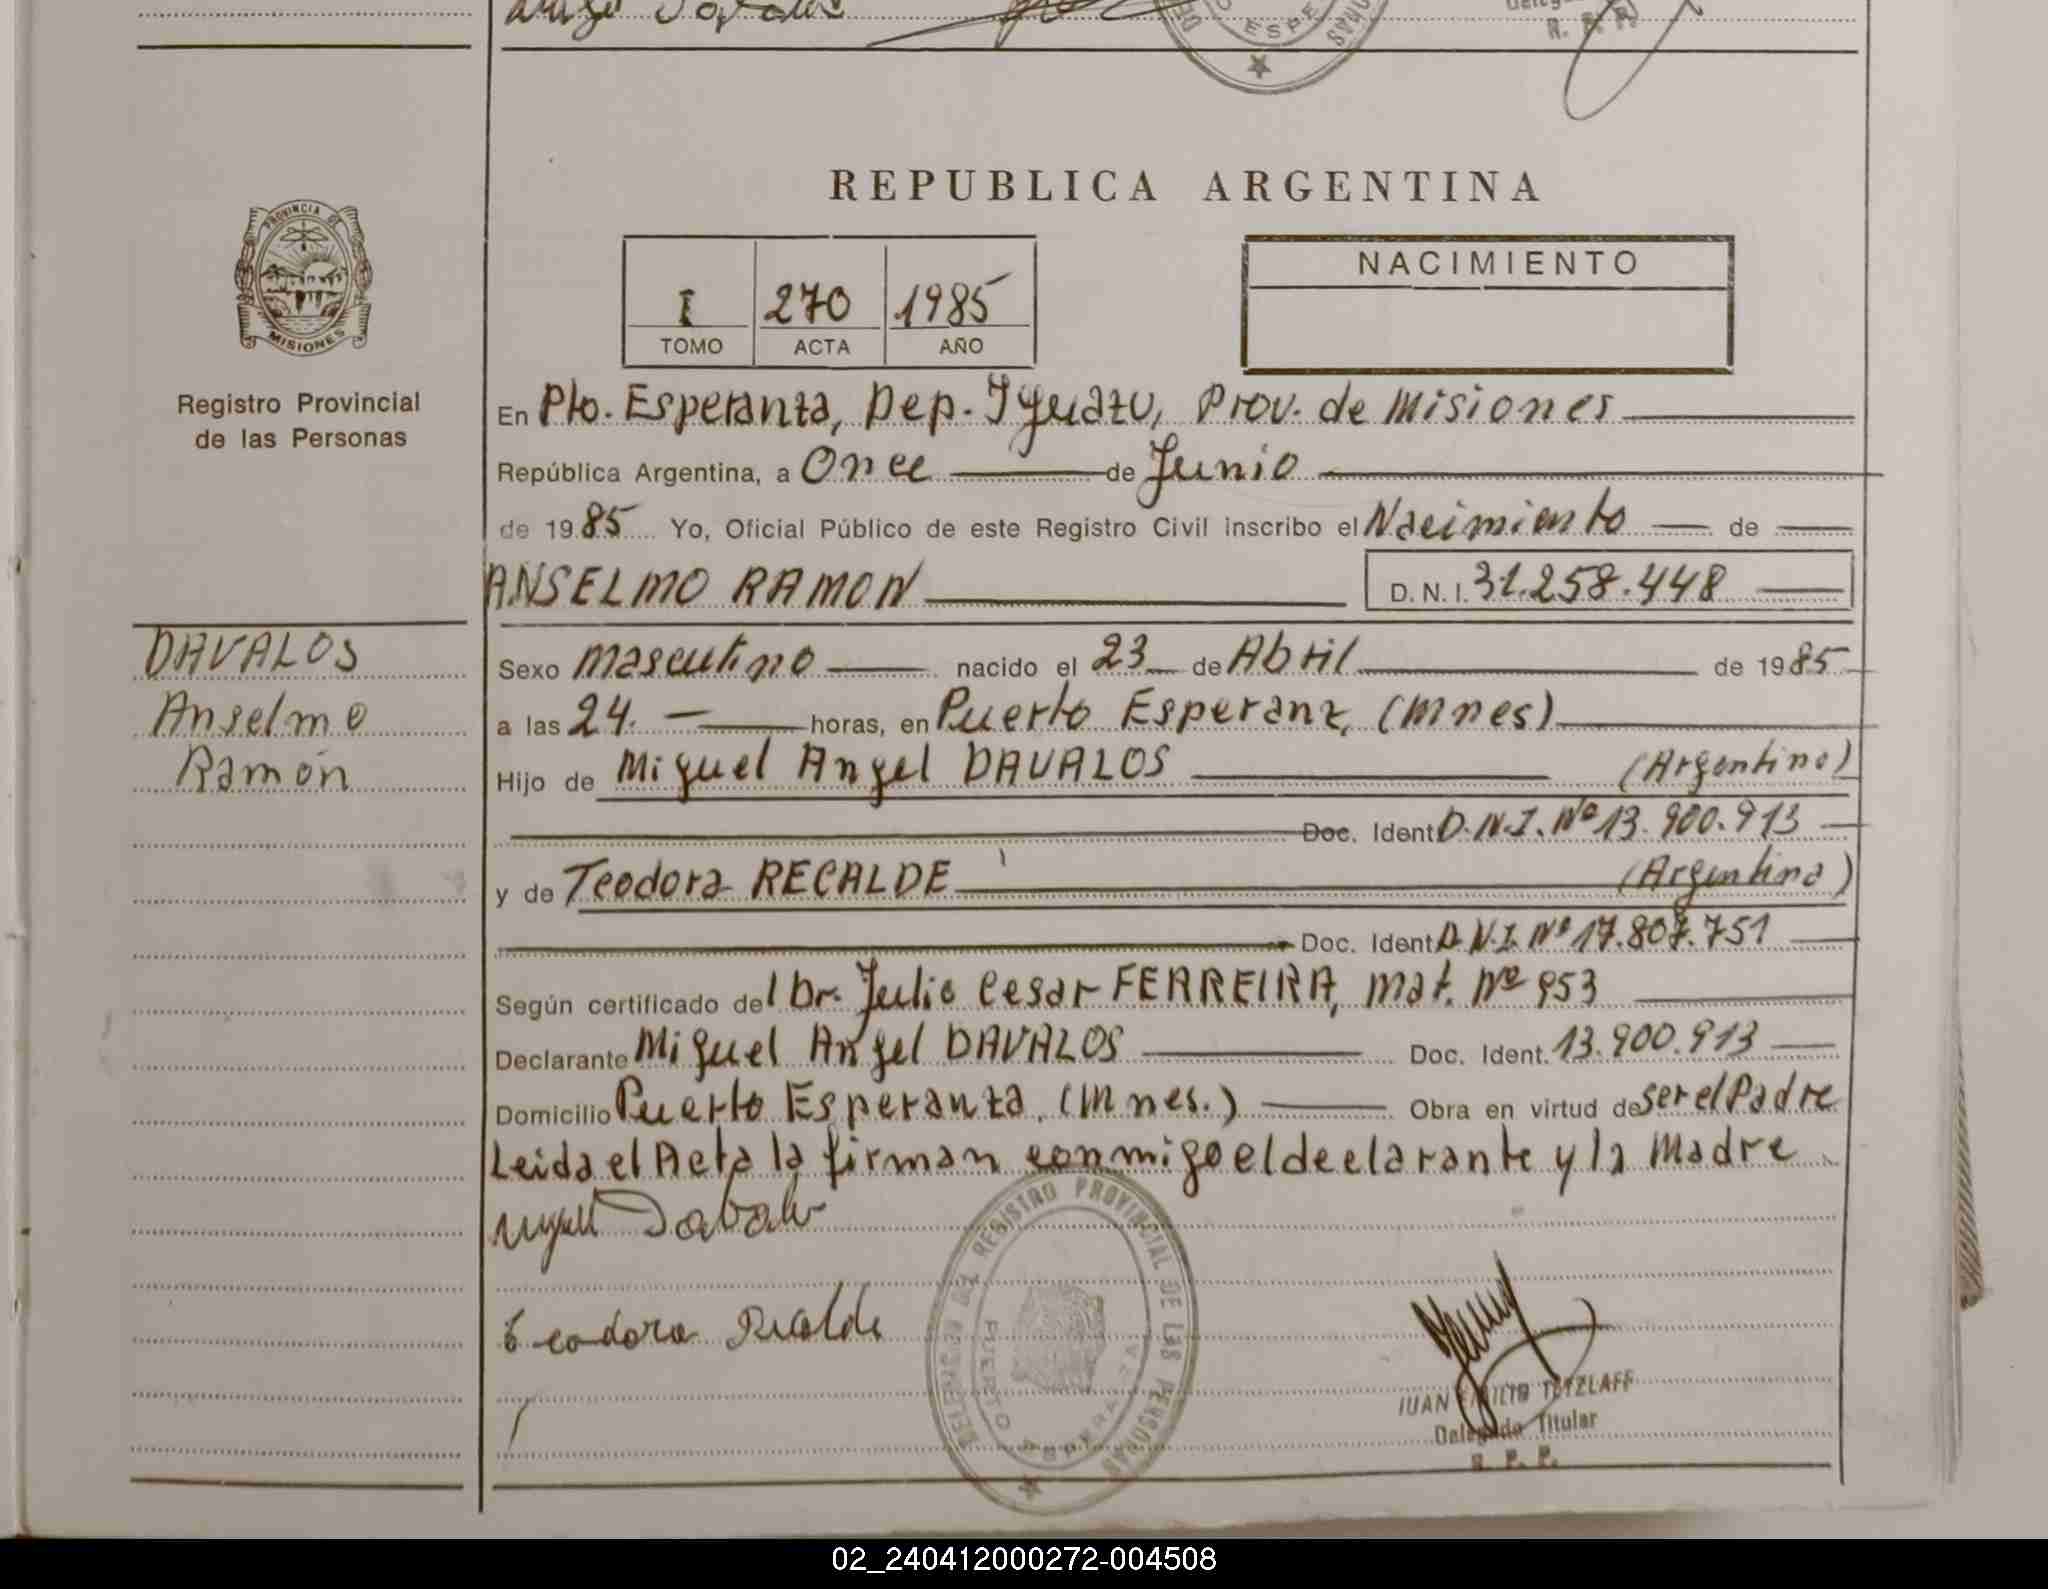 R. P. P.
ESPE
REPUBLICA ARGENTINA
PROVINCIA DE
MISIONES
Registro Provincial
de las Personas
I 270 1985
TOMO ACTA AÑO
NACIMIENTO
En Pto. Esperanza, Dep. Iguazu, Prov. de Misiones
República Argentina, a Once de Junio
de 1985 Yo, Oficial Público de este Registro Civil inscribo el Nacimiento de
ANSELMO RAMON D. N. I. 31.258.448
DAVALOS
Anselmo
Ramón
Sexo masculino nacido el 23 de Abril de 1985
a las 24. horas, en Puerto Esperanz, (Mnes)
Hijo de Miguel Angel DAVALOS (Argentino)
Doc. Ident D.N.I. Nº 13.900.913
y de Teodora RECALDE (Argentina)
Doc. Ident D.N.I. Nº 17.807.751
Según certificado del Dr. Julio Cesar FERREIRA, Mat. Nº 953
Declarante Miguel Angel DAVALOS Doc. Ident. 13.900.913
Domicilio Puerto Esperanza, (Mnes.) Obra en virtud de ser el Padre
Leida el Acta la firman conmigo el declarante y la Madre
Teodora Recalde
REGISTRO PROVINCIAL DE LAS PERSONAS
PUERTO ESPERANZA
JUAN EMILIO TETZLAFF
Delegado Titular
R. P. P.
02_240412000272-004508